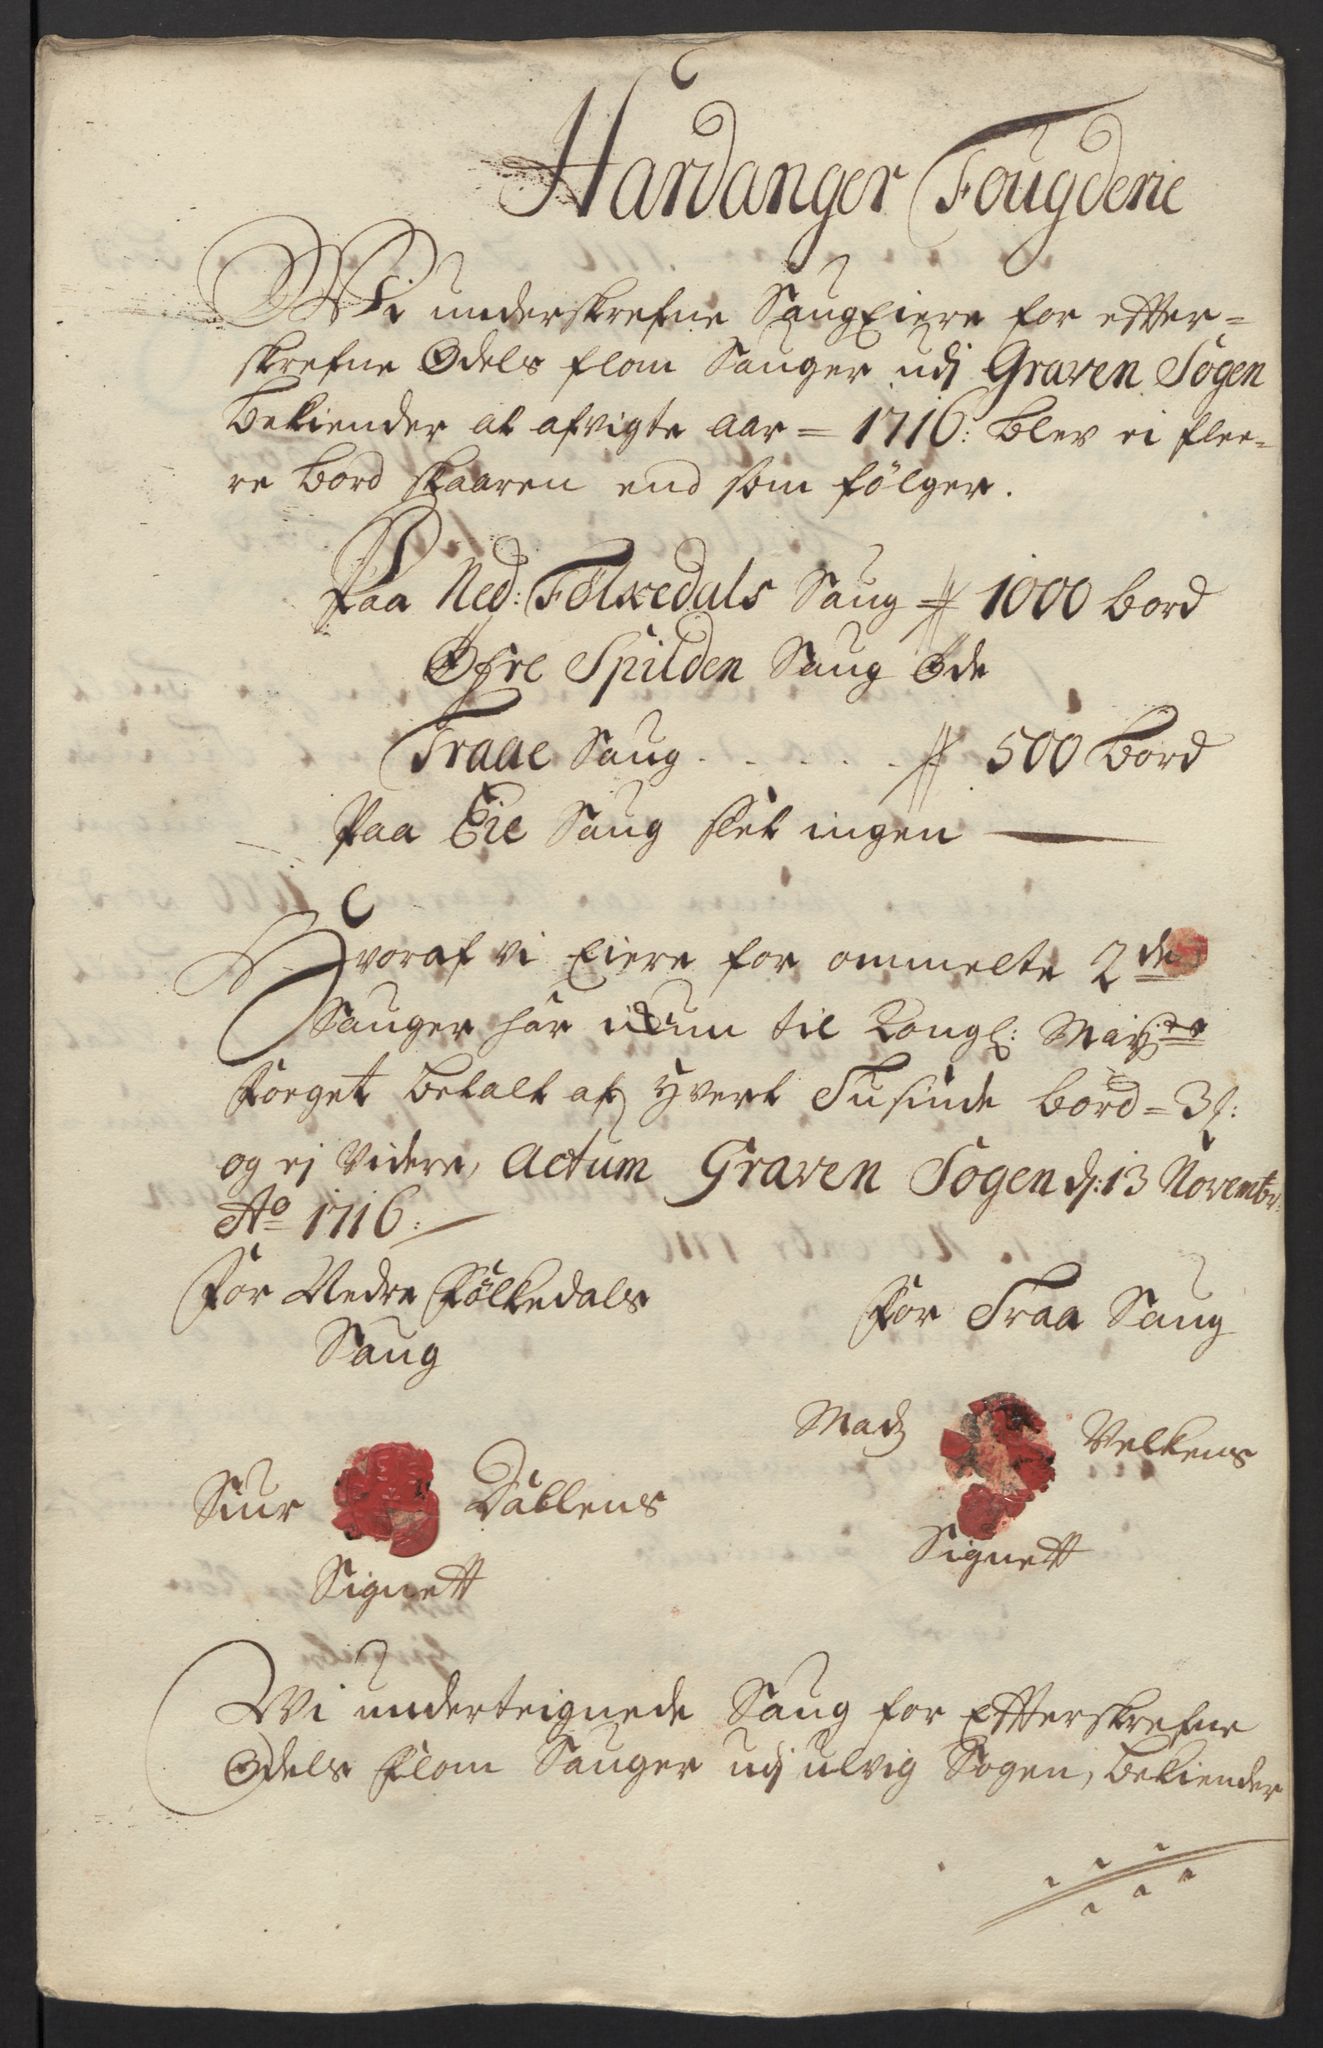 Hardanger Fougderie
Wi underskrefne Saugeiere for efter=
skrefne Odels flom Sauger udj Graven Sogen
bekiender at afvigte aar = 1716: blev ei flee=
re bord skaaren end som følger.
Paa Ned: Følkedals Saug = 1000 bord
Øfre Spilden Saug øde
Traae Saug . . . . . 500 Bord
Paa Eie Saug slet ingen
Hvoraf vi Eiere for ommelte 2de
Sauger har til Kongl: May:ts
Foeget betalt af hvert Tusinde bord = 3
og ej videre, Actum Graven Sogen d: 13 Novembr:
Ao 1716:
For Nedre Følkedals
Saug
For Traa Saug
Madz Velkens
Signett
Siur Dablens
Signett
Wi underteignede Saug for Efterskrefne
Odels flom Sauger udj ulvig Sogen, bekiender